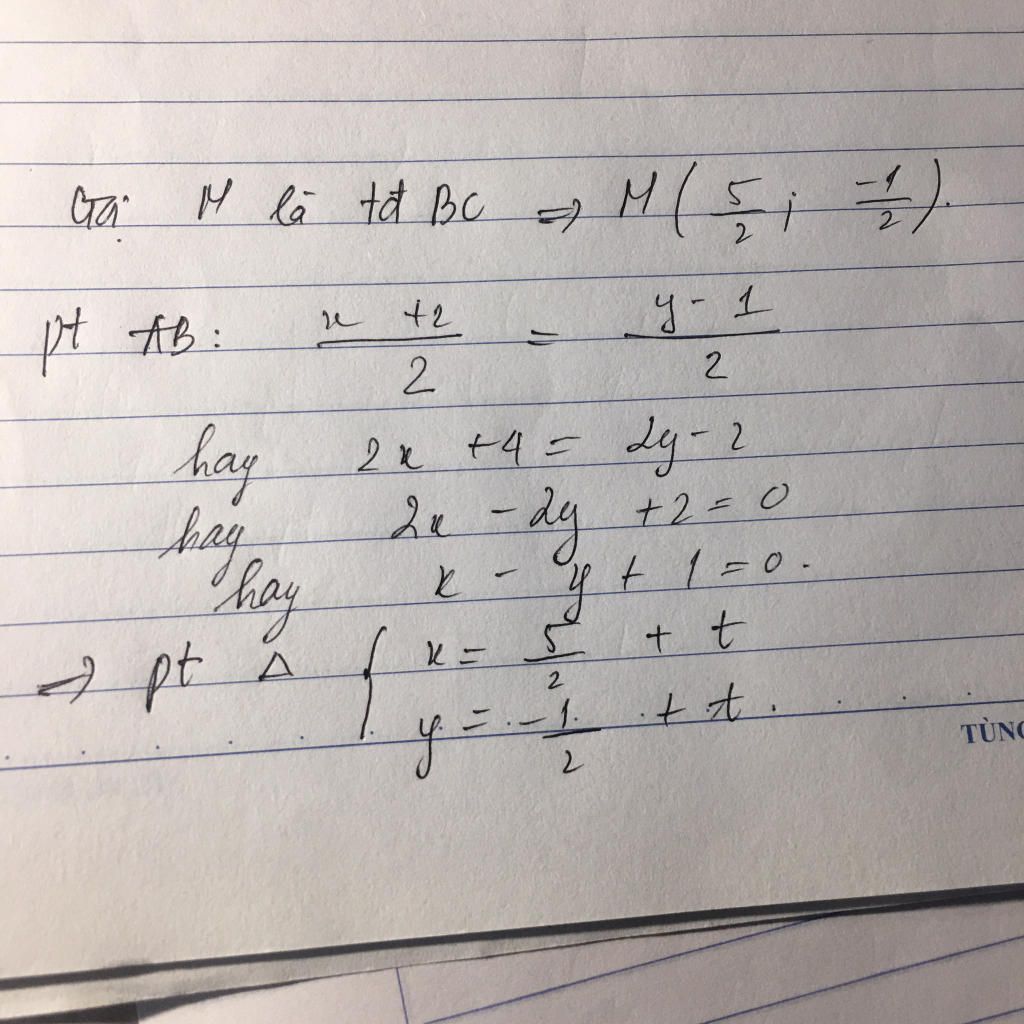 Gọi M là tđ BC => M ( 5/2 ; -1/2 ).
pt AB: (x + 2)/2 = (y - 1)/2
hay 2x + 4 = 2y - 2
hay 2x - 2y + 2 = 0
hay x - y + 1 = 0.
=> pt Δ { x = 5/2 + t
y = -1/2 + t.
TÙNG